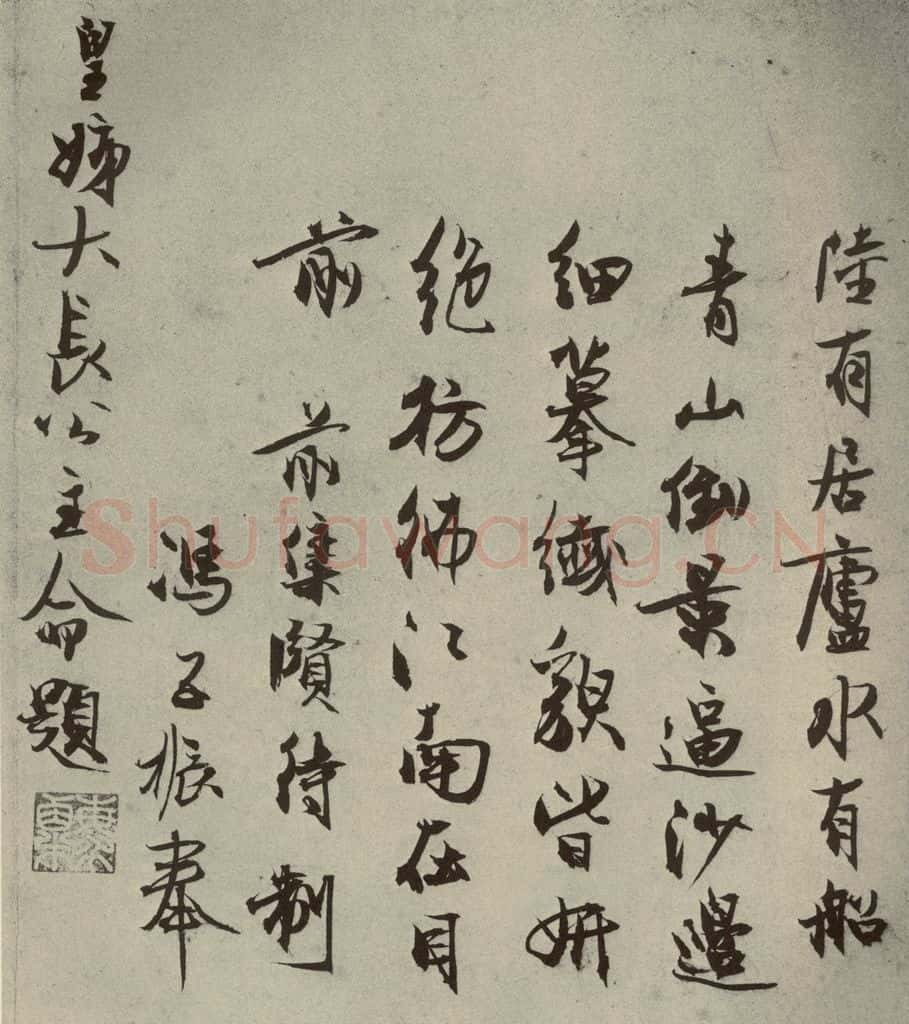 陸有居廬水有船
青山倒景逼沙邊
細摹纖貌皆妍
絶彷彿江南在目
前 前集賢待制
馮子振奉
皇姊大長公主命題
Shufawang.CN